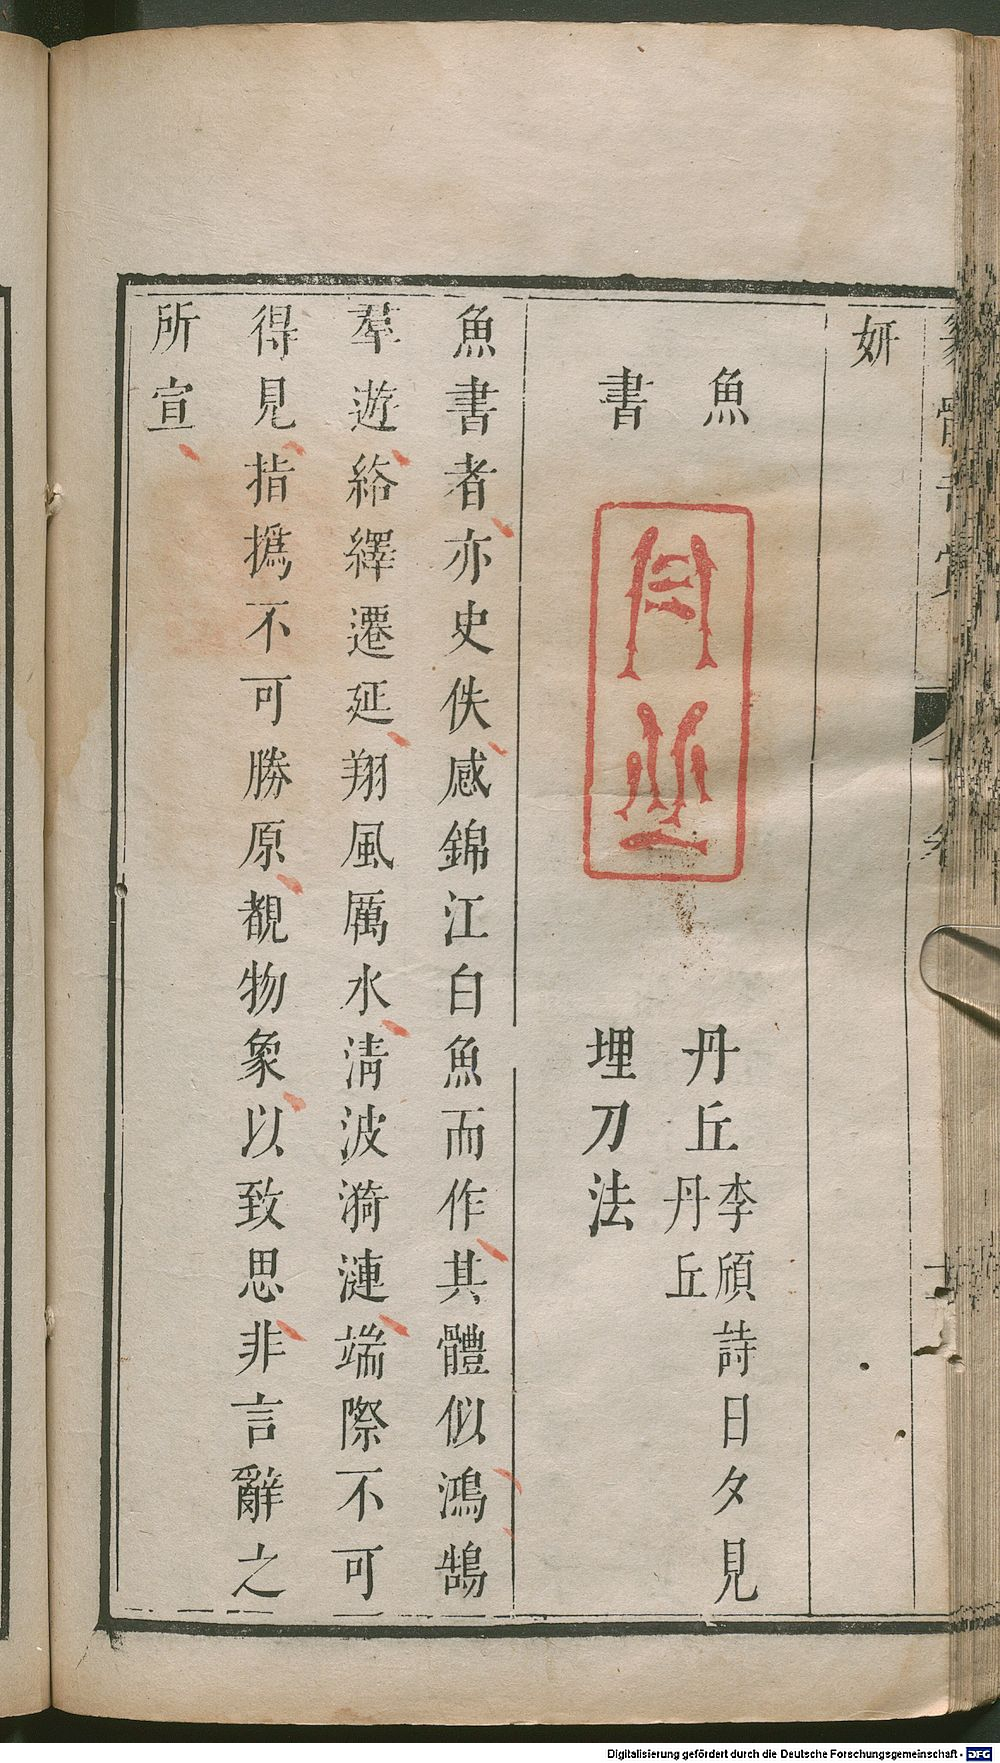 妍
魚書
丹丘李頎詩日夕見丹丘
埋刀法
魚書者亦史佚感錦江白魚而作其體似鴻鵠
羣遊絡繹遷延翔風厲水清波漪漣端際不可
得見指撝不可勝原覩物象以致思非言辭之
所宣
Digitalisierung gefördert durch die Deutsche Forschungsgemeinschaft - DFG